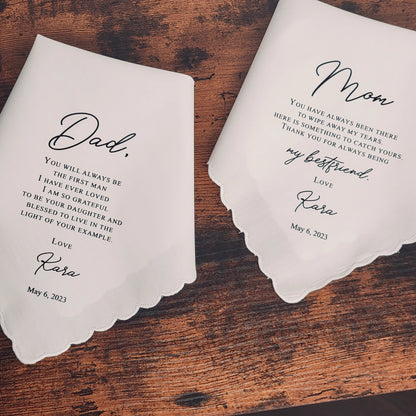 Dad,
YOU WILL ALWAYS BE
THE FIRST MAN
I HAVE EVER LOVED
I AM SO GRATEFUL
TO BE YOUR DAUGHTER AND
BLESSED TO LIVE IN THE
LIGHT OF YOUR EXAMPLE.
LOVE
Kara
May 6, 2023
Mom
YOU HAVE ALWAYS BEEN THERE
TO WIPE AWAY MY TEARS.
HERE IS SOMETHING TO CATCH YOURS.
THANK YOU FOR ALWAYS BEING
my bestfriend.
LOVE
Kara
May 6, 2023